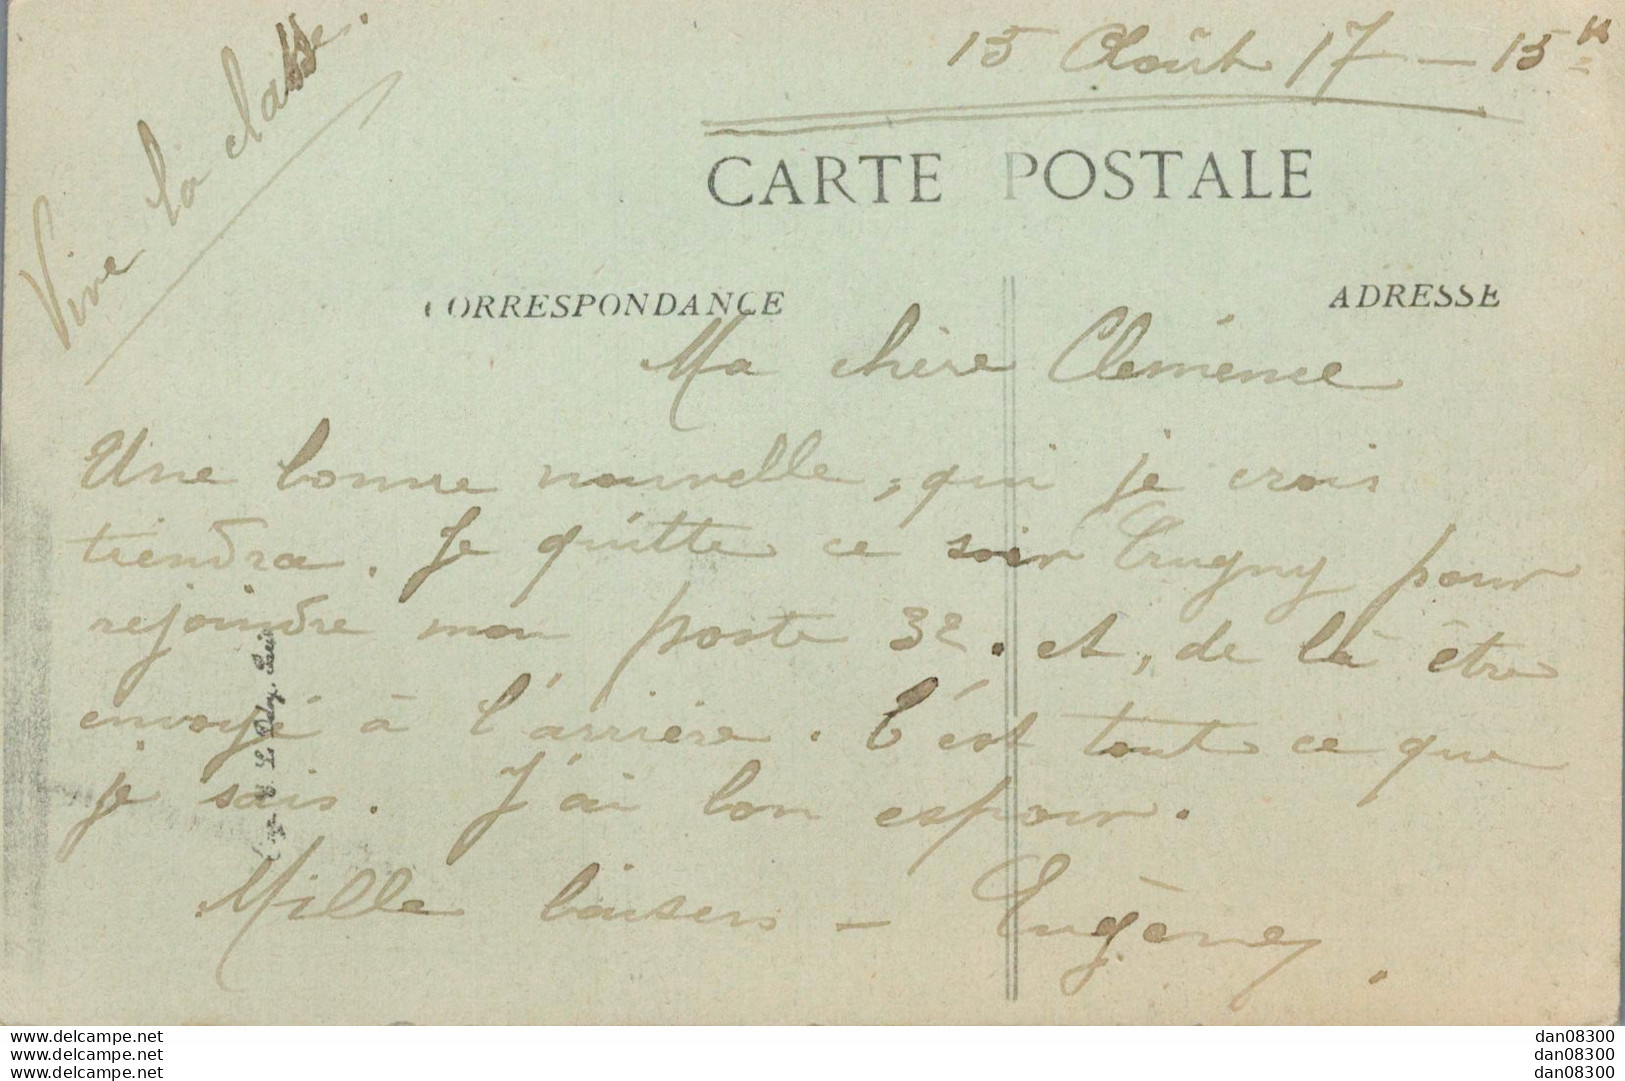 Vive la classe.
15 Août 17 – 15 H
CARTE POSTALE
CORRESPONDANCE
ADRESSE
Ma chère Clémence
Une bonne nouvelle, qui je crois
tiendra. Je quitte ce soir Trugny pour
rejoindre mon poste 32. et, de là être
envoyé à l'arrière. C'est tout ce que
je sais. J'ai bon espoir.
Mille baisers – Eugène.
E. Le Deley, Paris
www.delcampe.net
www.delcampe.net
www.delcampe.net
dan08300
dan08300
dan08300